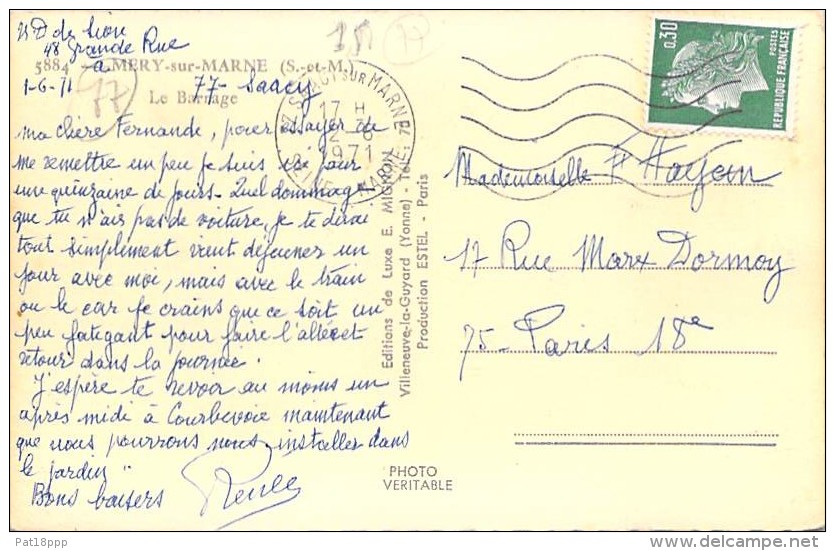 ND de Sion
48 Grande Rue
à
5884 - MERY-sur-MARNE (S.-et-M.)
1-6-71
77
77 - Saacy
Le Barrage
ma chère Fernande, pour essayer de
me remettre un peu je suis ici pour
une quinzaine de jours - Quel dommage
que tu n'ais pas de voiture, je te dirai
tout simplement vient déjeuner un
jour avec moi, mais avec le train
ou le car je crains que ce soit un
peu fatigant pour faire l'aller et
retour dans la journée.
J'espère te revoir au moins un
après midi à Courbevoie maintenant
que nous pourrons nous installer dans
le jardin
Bons baisers
77 SAACY SUR MARNE
17 H
2 - 6
1971
SEINE ET MARNE
Editions de Luxe E. MIGNON
Villeneuve-la-Guyard (Yonne) - Télé: 70
Production ESTEL - Paris
PHOTO
VERITABLE
0,30
POSTES
REPUBLIQUE FRANÇAISE
Mademoiselle F
17 Rue Marx Dormoy
75 - Paris 18e
Pat18ppp
©delcampe.net